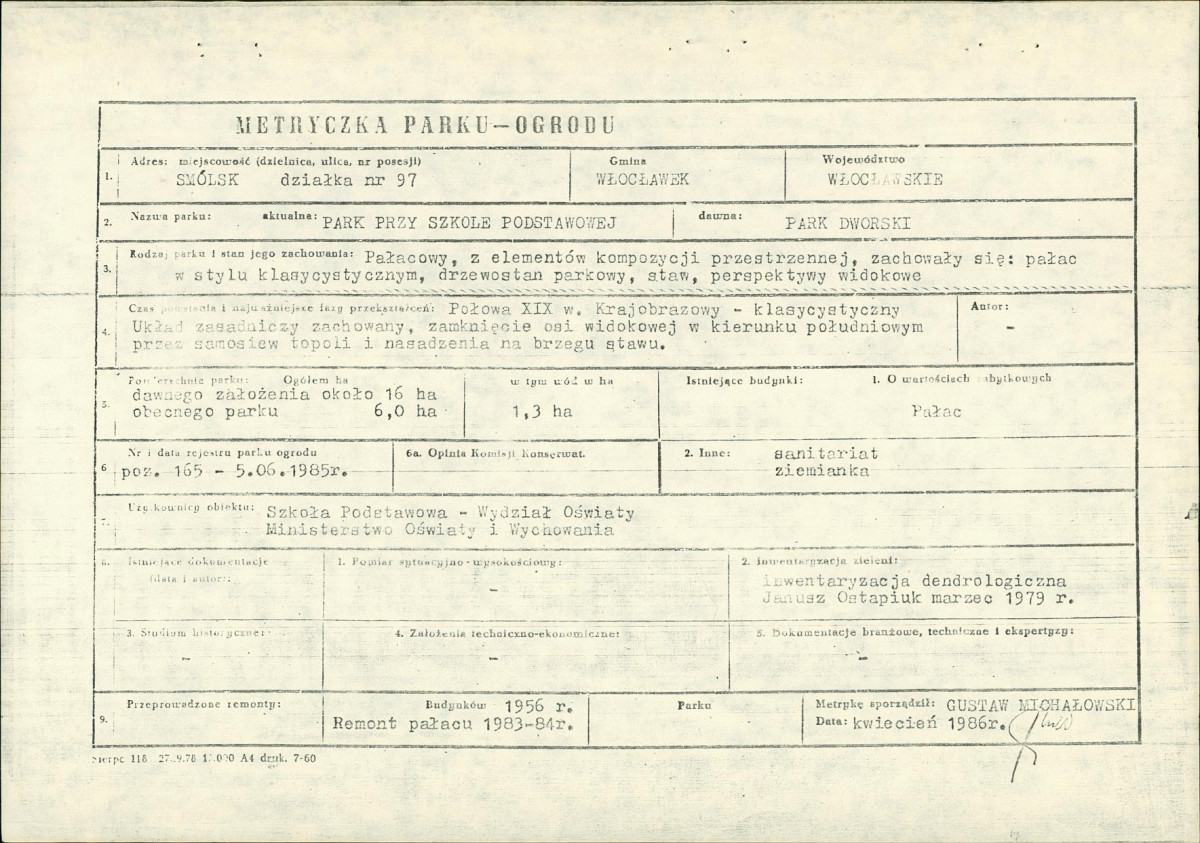 METRYCZKA PARKU-OGRODU
1. Adres: miejscowość (dzielnica, ulica, nr posesji) Gmina Województwo
SMÓLSK działka nr 97 WŁOCŁAWEK WŁOCŁAWSKIE
2. Nazwa parku: aktualna: PARK PRZY SZKOLE PODSTAWOWEJ dawna: PARK DWORSKI
3. Rodzaj parku i stan jego zachowania: Pałacowy, z elementów kompozycji przestrzennej, zachowały się: pałac
w stylu klasycystycznym, drzewostan parkowy, staw, perspektywy widokowe
4. Czas powstania i najważniejsze fazy przekształceń: Połowa XIX w. Krajobrazowy - klasycystyczny Autor:
Układ zasadniczy zachowany, zamknięcie osi widokowej w kierunku południowym -
przez samosiew topoli i nasadzenia na brzegu stawu.
5. Powierzchnia parku: Ogółem ha w tym wód w ha Istniejące budynki: 1. O wartościach zabytkowych
dawnego założenia około 16 ha
obecnego parku 6,0 ha 1,3 ha Pałac
6 Nr i data rejestru parku ogrodu 6a. Opinia Komisji Konserwat. 2. Inne: sanitariat
poz. 165 - 5.06.1985r. ziemianka
7. Użytkownicy obiektu: Szkoła Podstawowa - Wydział Oświaty
Ministerstwo Oświaty i Wychowania
8. Istniejące dokumentacje 1. Pomiar sytuacyjno-wysokościowy: 2. Inwentaryzacja zieleni:
(data i autor): - inwentaryzacja dendrologiczna
Janusz Ostapiuk marzec 1979 r.
3. Studium historyczne: 4. Założenia techniczno-ekonomiczne: 5. Dokumentacje branżowe, techniczne i ekspertyzy:
- - -
9. Przeprowadzone remonty: Budynków 1956 r. Parku Metrykę sporządził: GUSTAW MICHAŁOWSKI
Remont pałacu 1983-84r. Data: kwiecień 1986r.
A4 druk. 7-60